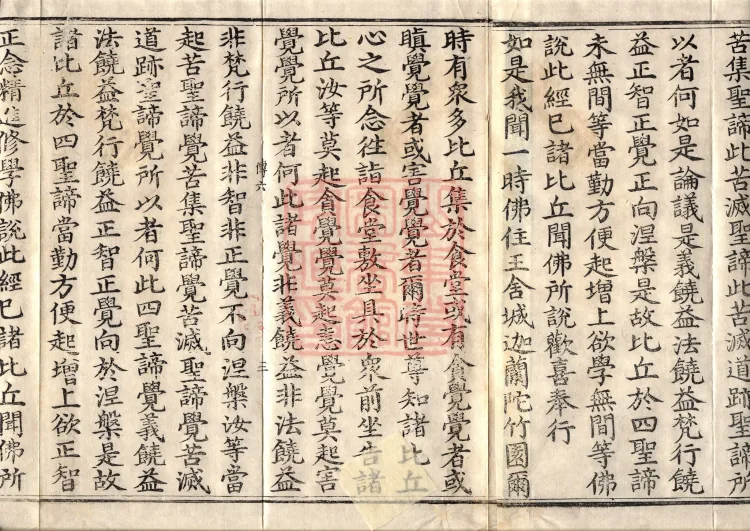 苦集聖諦此苦滅聖諦此苦滅道跡聖諦所
以者何如是論議是義饒益法饒益梵行饒
益正智正覺正向涅槃是故比丘於四聖諦
未無間等當勤方便起增上欲學無間等佛
說此經已諸比丘聞佛所說歡喜奉行
如是我聞一時佛住王舍城迦蘭陀竹園爾
時有眾多比丘集於食堂或有貪覺覺者或
瞋覺覺者或害覺覺者爾時世尊知諸比丘
心之所念往詣食堂敷坐具於眾前坐告諸
比丘汝等莫起貪覺覺莫起恚覺覺莫起害
覺覺所以者何此諸覺非義饒益非法饒益
傳六 三
非梵行饒益非智非正覺不向涅槃汝等當
起苦聖諦覺苦集聖諦覺苦滅聖諦覺苦滅
道跡聖諦覺所以者何此四聖諦覺義饒益
法饒益梵行饒益正智正覺向於涅槃是故
諸比丘於四聖諦當勤方便起增上欲正智
正念精進修學佛說此經已諸比丘聞佛所